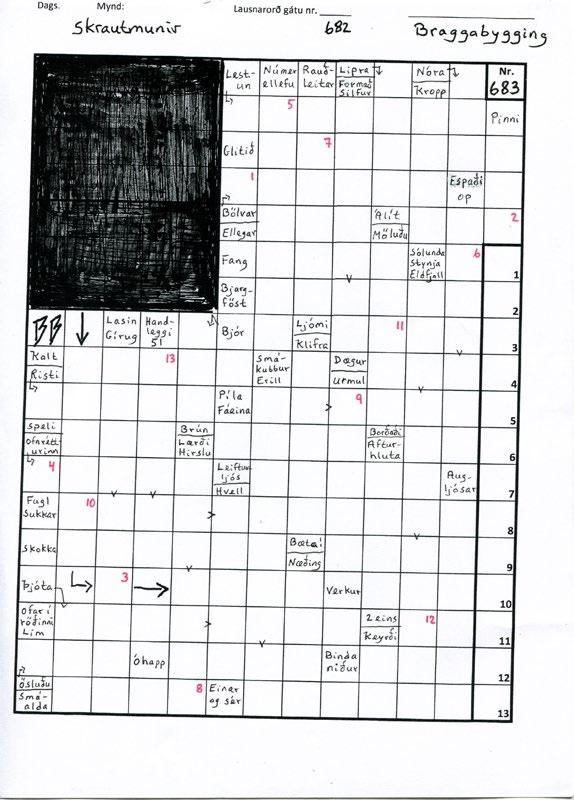 Dags. Mynd: Lausnarorð gátu nr. 682
Skrautmunir Braggabygging
Lest-
un
Númer
ellefu
Rauð-
leitar
Lipra
Formað
silfur
Nóra
Kropp
Nr.
683
5
Pinni
Glitið
7
1
Espaði
op
Bölvar
Álit
2
Ellegar
Möluðu
Fang
Sólunda
Stynja
Eldfjall
6
1
Bjarg-
föst
2
BB
Lasin
Gírug
Hand-
leggi
51
Bjór
Ljómi
Klifra
11
3
Kalt
Risti
13
Smá-
kubbur
Erill
Dægur
Urmul
4
Píla
Fáeina
9
5
Speli
Ofnrétt-
urinn
Brún
Lærði
Hirslu
Borðaði
Aftur-
hluta
6
4
Leiftur-
ljós
Hvell
Aug-
ljósar
7
Fugl
Sukkar
10
8
Skokka
Bætai
Næðing
9
Þjóta
3
Verkur
10
Ofar í
röðinni
Lím
2 eins
Keyrði
12
11
Óhapp
Binda
niður
12
Ösluðu
Smá-
alda
8
Einar
og sér
13